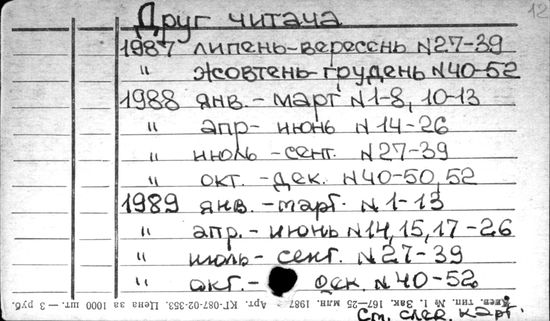 12
Друг читача
1987 липень-вересень N27-39
" жовтень-грудень N40-52
1988 янв.-март N1-8, 10-13
" апр-июнь N14-26
" июль-сент. N27-39
" окт.-дек. N40-50,52
1989 янв.-март. N1-13
" апр.-июнь N14,15,17-26
" июль-сент. N27-39
" окт.- дек. N40-52
Киев. тип. № 1. Зак. 167—25 млн. 1987. Арт. КГ-087-02-353. Цена за 1000 шт. — 3 руб.
См. след. карт.